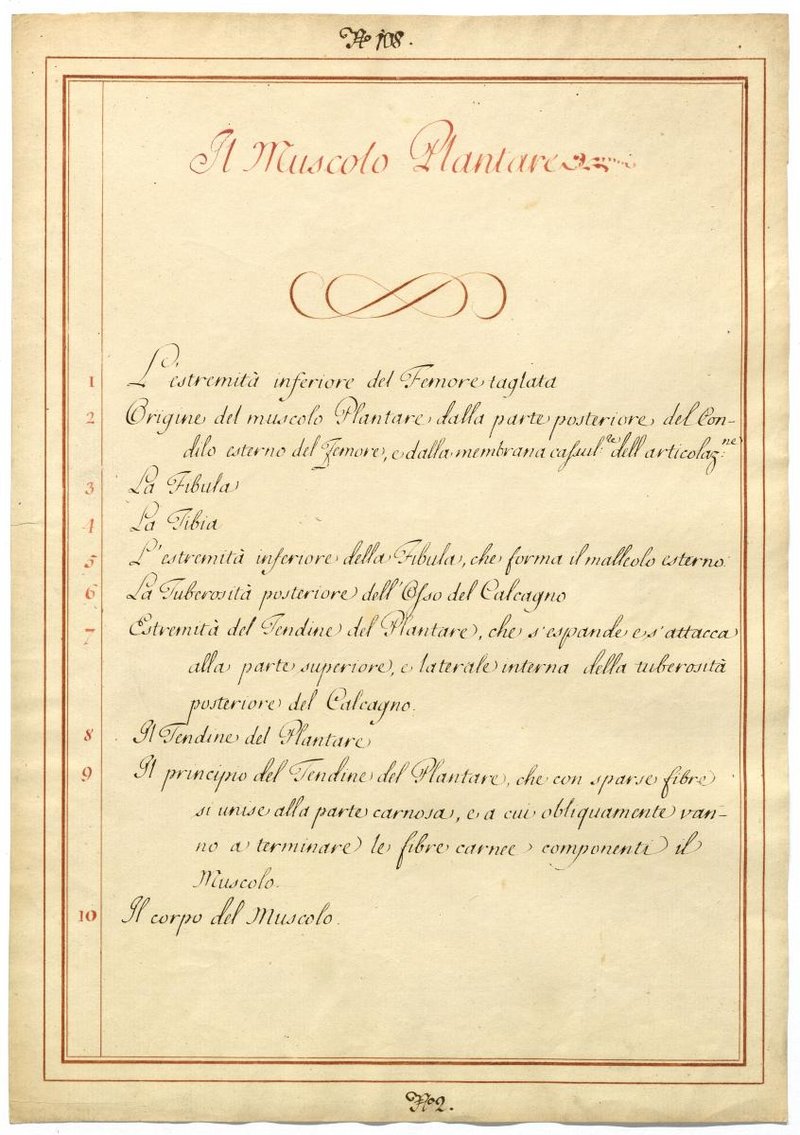 No 108.
Il Muscolo Plantare
1 L'estremità inferiore del Femore taglata
2 Origine del muscolo Plantare dalla parte posteriore del Con-
dilo esterno del Femore, e dalla membrana cassul:re dell articolaz:ne
3 La Fibula
4 La Tibia
5 L'estremità inferiore della Fibula, che forma il malleolo esterno.
6 La Tuberosità posteriore dell'Osso del Calcagno
7 Estremità del Tendine del Plantare, che s'espande e s'attacca
alla parte superiore, e laterale interna della tuberosità
posteriore del Calcagno.
8 Il Tendine del Plantare
9 Il principio del Tendine del Plantare, che con sparse fibre
si unise alla parte carnosa, e a cui obliquamente van-
no a terminare le fibre carnee componenti il
Muscolo.
10 Il corpo del Muscolo.
No 2.